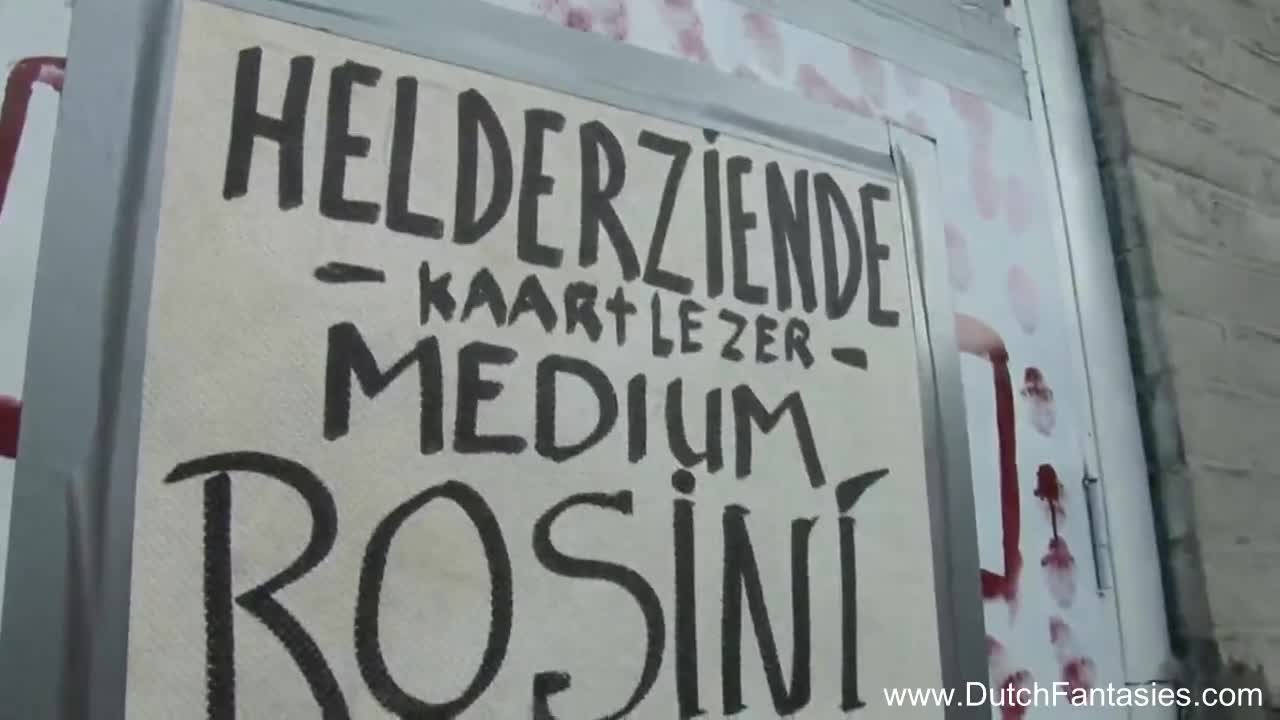 HELDERZiENDE
- KAARTLEZER -
MEDIUM
ROSiNÍ
www.DutchFantasies.com